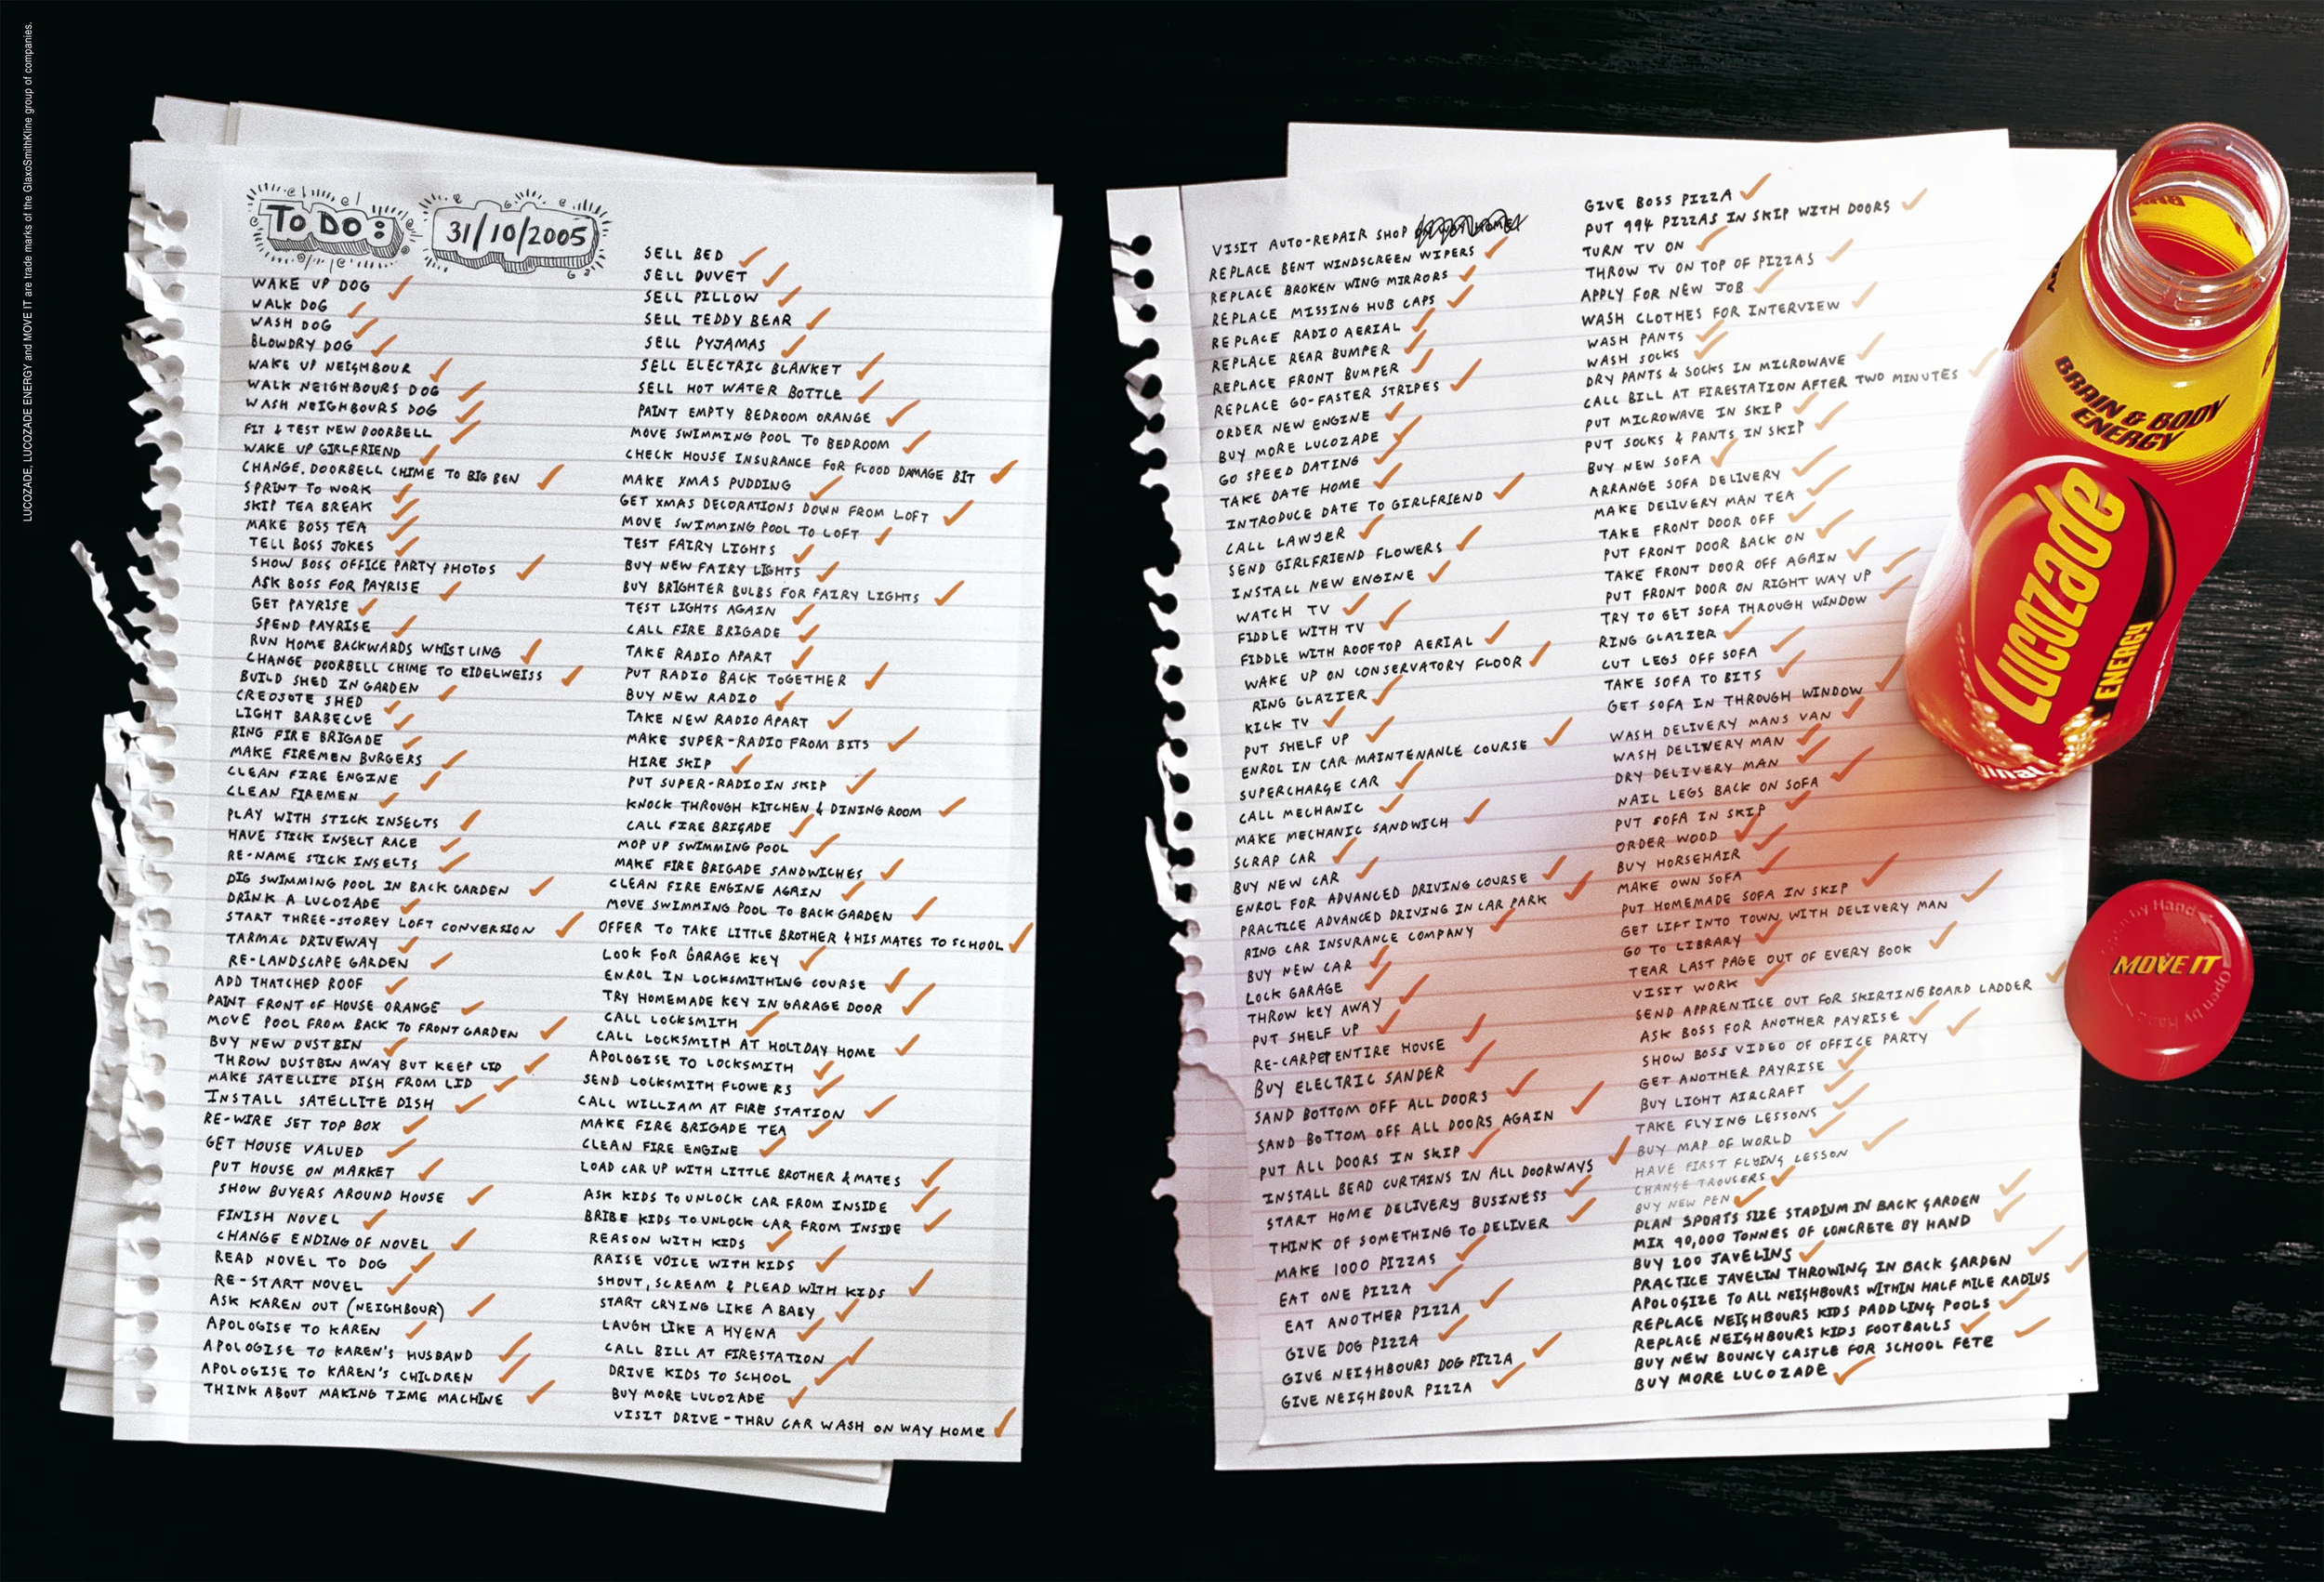 LUCOZADE, LUCOZADE ENERGY and MOVE IT are trade marks of the GlaxoSmithKline group of companies.
TO DO:
31/10/2005
WAKE UP DOG
WALK DOG
WASH DOG
BLOWDRY DOG
WAKE UP NEIGHBOUR
WALK NEIGHBOURS DOG
WASH NEIGHBOURS DOG
FIT & TEST NEW DOORBELL
WAKE UP GIRLFRIEND
CHANGE DOORBELL CHIME TO BIG BEN
SPRINT TO WORK
SKIP TEA BREAK
MAKE BOSS TEA
TELL BOSS JOKES
SHOW BOSS OFFICE PARTY PHOTOS
ASK BOSS FOR PAYRISE
GET PAYRISE
SPEND PAYRISE
RUN HOME BACKWARDS WHISTLING
CHANGE DOORBELL CHIME TO EIDELWEISS
BUILD SHED IN GARDEN
CREOSOTE SHED
LIGHT BARBECUE
RING FIRE BRIGADE
MAKE FIREMEN BURGERS
CLEAN FIRE ENGINE
CLEAN FIREMEN
PLAY WITH STICK INSECTS
HAVE STICK INSECT RACE
RE-NAME STICK INSECTS
DIG SWIMMING POOL IN BACK GARDEN
DRINK A LUCOZADE
START THREE-STOREY LOFT CONVERSION
TARMAC DRIVEWAY
RE-LANDSCAPE GARDEN
ADD THATCHED ROOF
PAINT FRONT OF HOUSE ORANGE
MOVE POOL FROM BACK TO FRONT GARDEN
BUY NEW DUSTBIN
THROW DUSTBIN AWAY BUT KEEP LID
MAKE SATELLITE DISH FROM LID
INSTALL SATELLITE DISH
RE-WIRE SET TOP BOX
GET HOUSE VALUED
PUT HOUSE ON MARKET
SHOW BUYERS AROUND HOUSE
FINISH NOVEL
CHANGE ENDING OF NOVEL
READ NOVEL TO DOG
RE-START NOVEL
ASK KAREN OUT (NEIGHBOUR)
APOLOGISE TO KAREN
APOLOGISE TO KAREN'S HUSBAND
APOLOGISE TO KAREN'S CHILDREN
THINK ABOUT MAKING TIME MACHINE
SELL BED
SELL DUVET
SELL PILLOW
SELL TEDDY BEAR
SELL PYJAMAS
SELL ELECTRIC BLANKET
SELL HOT WATER BOTTLE
PAINT EMPTY BEDROOM ORANGE
MOVE SWIMMING POOL TO BEDROOM
CHECK HOUSE INSURANCE FOR FLOOD DAMAGE BIT
MAKE XMAS PUDDING
GET XMAS DECORATIONS DOWN FROM LOFT
MOVE SWIMMING POOL TO LOFT
TEST FAIRY LIGHTS
BUY NEW FAIRY LIGHTS
BUY BRIGHTER BULBS FOR FAIRY LIGHTS
TEST LIGHTS AGAIN
CALL FIRE BRIGADE
TAKE RADIO APART
PUT RADIO BACK TOGETHER
BUY NEW RADIO
TAKE NEW RADIO APART
MAKE SUPER-RADIO FROM BITS
HIRE SKIP
PUT SUPER-RADIO IN SKIP
KNOCK THROUGH KITCHEN & DINING ROOM
CALL FIRE BRIGADE
MOP UP SWIMMING POOL
MAKE FIRE BRIGADE SANDWICHES
CLEAN FIRE ENGINE AGAIN
MOVE SWIMMING POOL TO BACK GARDEN
OFFER TO TAKE LITTLE BROTHER & HIS MATES TO SCHOOL
LOOK FOR GARAGE KEY
ENROL IN LOCKSMITHING COURSE
TRY HOMEMADE KEY IN GARAGE DOOR
CALL LOCKSMITH
CALL LOCKSMITH AT HOLIDAY HOME
APOLOGISE TO LOCKSMITH
SEND LOCKSMITH FLOWERS
CALL WILLIAM AT FIRE STATION
MAKE FIRE BRIGADE TEA
CLEAN FIRE ENGINE
LOAD CAR UP WITH LITTLE BROTHER & MATES
ASK KIDS TO UNLOCK CAR FROM INSIDE
BRIBE KIDS TO UNLOCK CAR FROM INSIDE
REASON WITH KIDS
RAISE VOICE WITH KIDS
SHOUT, SCREAM & PLEAD WITH KIDS
START CRYING LIKE A BABY
LAUGH LIKE A HYENA
CALL BILL AT FIRESTATION
DRIVE KIDS TO SCHOOL
BUY MORE LUCOZADE
VISIT DRIVE-THRU CAR WASH ON WAY HOME
VISIT AUTO-REPAIR SHOP
REPLACE BENT WINDSCREEN WIPERS
REPLACE BROKEN WING MIRRORS
REPLACE MISSING HUB CAPS
REPLACE RADIO AERIAL
REPLACE REAR BUMPER
REPLACE FRONT BUMPER
REPLACE GO-FASTER STRIPES
ORDER NEW ENGINE
BUY MORE LUCOZADE
GO SPEED DATING
TAKE DATE HOME
INTRODUCE DATE TO GIRLFRIEND
CALL LAWYER
SEND GIRLFRIEND FLOWERS
INSTALL NEW ENGINE
WATCH TV
FIDDLE WITH TV
FIDDLE WITH ROOFTOP AERIAL
WAKE UP ON CONSERVATORY FLOOR
RING GLAZIER
KICK TV
PUT SHELF UP
ENROL IN CAR MAINTENANCE COURSE
SUPERCHARGE CAR
CALL MECHANIC
MAKE MECHANIC SANDWICH
SCRAP CAR
BUY NEW CAR
ENROL FOR ADVANCED DRIVING COURSE
PRACTICE ADVANCED DRIVING IN CAR PARK
RING CAR INSURANCE COMPANY
BUY NEW CAR
LOCK GARAGE
THROW KEY AWAY
PUT SHELF UP
RE-CARPET ENTIRE HOUSE
BUY ELECTRIC SANDER
SAND BOTTOM OFF ALL DOORS
SAND BOTTOM OFF ALL DOORS AGAIN
PUT ALL DOORS IN SKIP
INSTALL BEAD CURTAINS IN ALL DOORWAYS
START HOME DELIVERY BUSINESS
THINK OF SOMETHING TO DELIVER
MAKE 1000 PIZZAS
EAT ONE PIZZA
EAT ANOTHER PIZZA
GIVE DOG PIZZA
GIVE NEIGHBOURS DOG PIZZA
GIVE NEIGHBOUR PIZZA
GIVE BOSS PIZZA
PUT 994 PIZZAS IN SKIP WITH DOORS
TURN TV ON
THROW TV ON TOP OF PIZZAS
APPLY FOR NEW JOB
WASH CLOTHES FOR INTERVIEW
WASH PANTS
WASH SOCKS
DRY PANTS & SOCKS IN MICROWAVE
CALL BILL AT FIRESTATION AFTER TWO MINUTES
PUT MICROWAVE IN SKIP
PUT SOCKS & PANTS IN SKIP
BUY NEW SOFA
ARRANGE SOFA DELIVERY
MAKE DELIVERY MAN TEA
TAKE FRONT DOOR OFF
PUT FRONT DOOR BACK ON
TAKE FRONT DOOR OFF AGAIN
PUT FRONT DOOR ON RIGHT WAY UP
TRY TO GET SOFA THROUGH WINDOW
RING GLAZIER
CUT LEGS OFF SOFA
TAKE SOFA TO BITS
GET SOFA IN THROUGH WINDOW
WASH DELIVERY MANS VAN
WASH DELIVERY MAN
DRY DELIVERY MAN
NAIL LEGS BACK ON SOFA
PUT SOFA IN SKIP
ORDER WOOD
BUY HORSEHAIR
MAKE OWN SOFA
PUT HOMEMADE SOFA IN SKIP
GET LIFT INTO TOWN WITH DELIVERY MAN
GO TO LIBRARY
TEAR LAST PAGE OUT OF EVERY BOOK
VISIT WORK
SEND APPRENTICE OUT FOR SKIRTINGBOARD LADDER
ASK BOSS FOR ANOTHER PAYRISE
SHOW BOSS VIDEO OF OFFICE PARTY
GET ANOTHER PAYRISE
BUY LIGHT AIRCRAFT
TAKE FLYING LESSONS
BUY MAP OF WORLD
HAVE FIRST FLYING LESSON
CHANGE TROUSERS
BUY NEW PEN
PLAN SPORTS SIZE STADIUM IN BACK GARDEN
MIX 90,000 TONNES OF CONCRETE BY HAND
BUY 200 JAVELINS
PRACTICE JAVELIN THROWING IN BACK GARDEN
APOLOGIZE TO ALL NEIGHBOURS WITHIN HALF MILE RADIUS
REPLACE NEIGHBOURS KIDS PADDLING POOLS
REPLACE NEIGHBOURS KIDS FOOTBALLS
BUY NEW BOUNCY CASTLE FOR SCHOOL FETE
BUY MORE LUCOZADE
BRAIN & BODY
ENERGY
Lucozade
ENERGY
Open by Hand
MOVE IT
Open by Hand